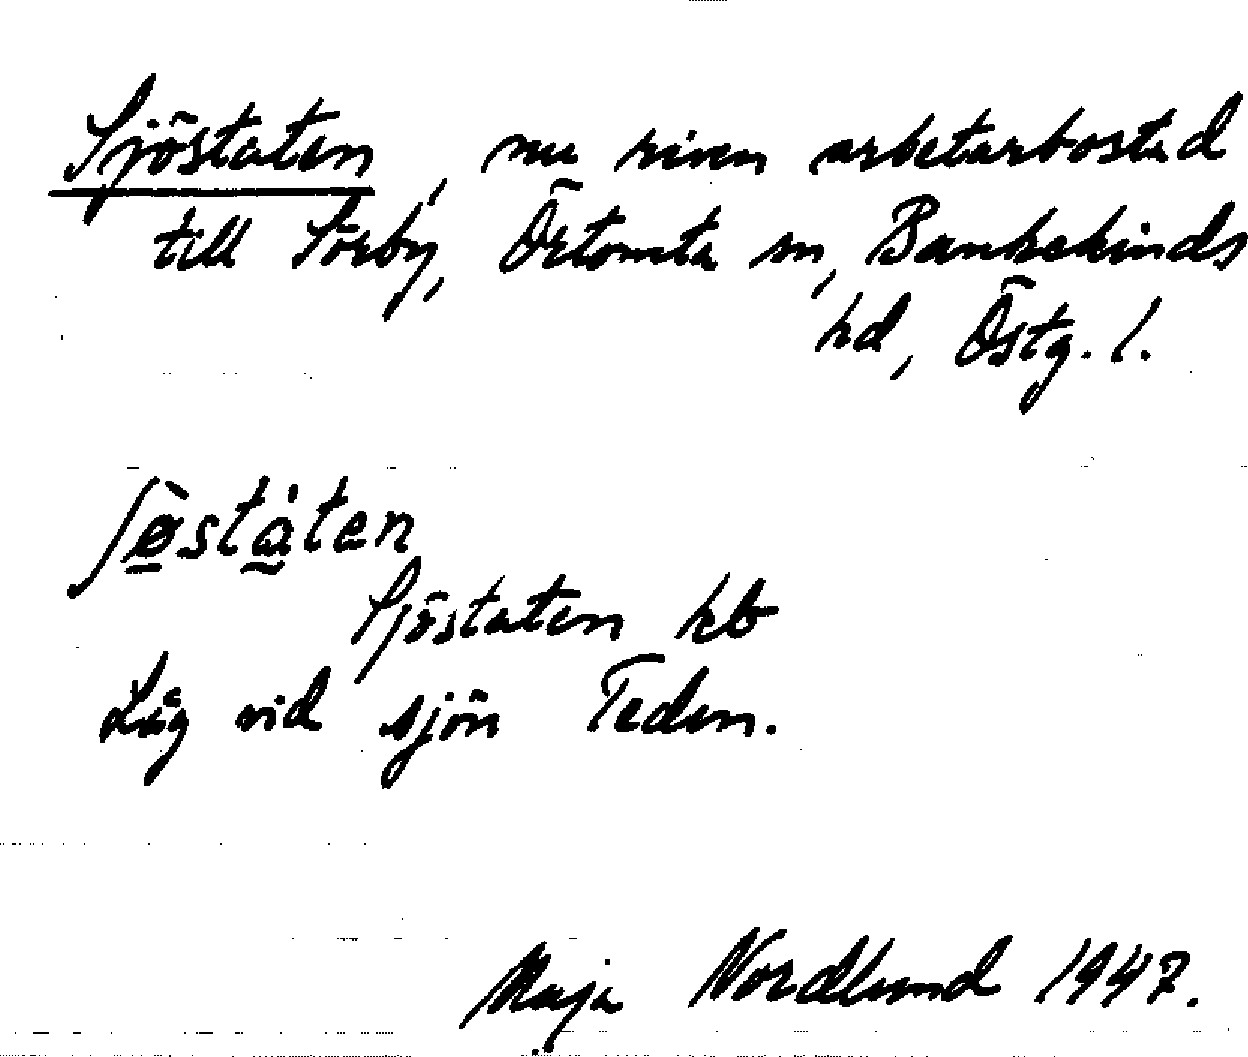 Sjöstaten, nu riven arbetarbostad
till Sörby, Örtomta sn, Bankekinds
hd, Östg. l.
ʃø̀ståten
Sjöstaten kb
Låg vid sjön Teden.
Maja Nordlund 1947.